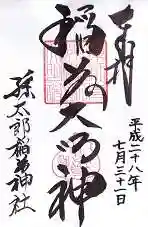 奉拝
稲荷大明神
平成二十八年
七月三十一日
孫太郎稲荷神社